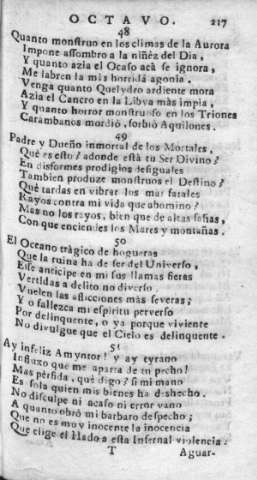 OCTAVO. 217
48
Quanto monstruo en los climas de la Aurora
Impone assombro a la niñèz del Dia,
Y quanto azia el Ocaso acà se ignora,
Me labren la mas horrida agonia.
Venga quanto Quelydro ardiente mora
Azia el Cancro en la Libya màs impia,
Y quanto horror monstruoso en los Triones
Carambanos mordiò, sorbiò Aquilones.
49
Padre y Dueño inmortal de los Mortales,
Què es esto? adonde està tu Ser Divino?
En disformes prodigios desiguales
Tambien produze monstruos el Destino?
Què tardas en vibrar los mas fatales
Rayos contra mi vida que abomino?
Mas no los rayos, bien que de altas sañas,
Con que enciendes los Mares y montañas.
50
El Oceano tràgico de hogueras
Que la ruina ha de ser del Universo,
Esse anticipe en mi sus llamas fieras
Vertidas a delito no diverso.
Vuelen las aflicciones màs severas;
Y o fallezca mi espiritu perverso
Por delinquente, o ya porque viviente
No divulgue que el Cielo es delinquente.
51
Ay infeliz Amyntor! y ay tyrano
Influxo que me aparta de tu pecho!
Mas pèrdida, què digo? si mi mano
Es sola quien mis bienes ha deshecho.
No disculpe ni acaso ni error vano
A quanto obrò mi barbaro despecho;
Que no es muy inocente la inocencia
Que elige el Hado a esta Infernal violencia.
T Aguar-